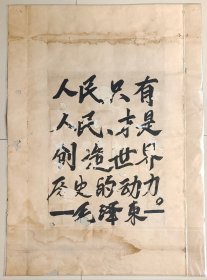 人民，只有
人民，才是
创造世界
历史的动力。
—毛泽东—